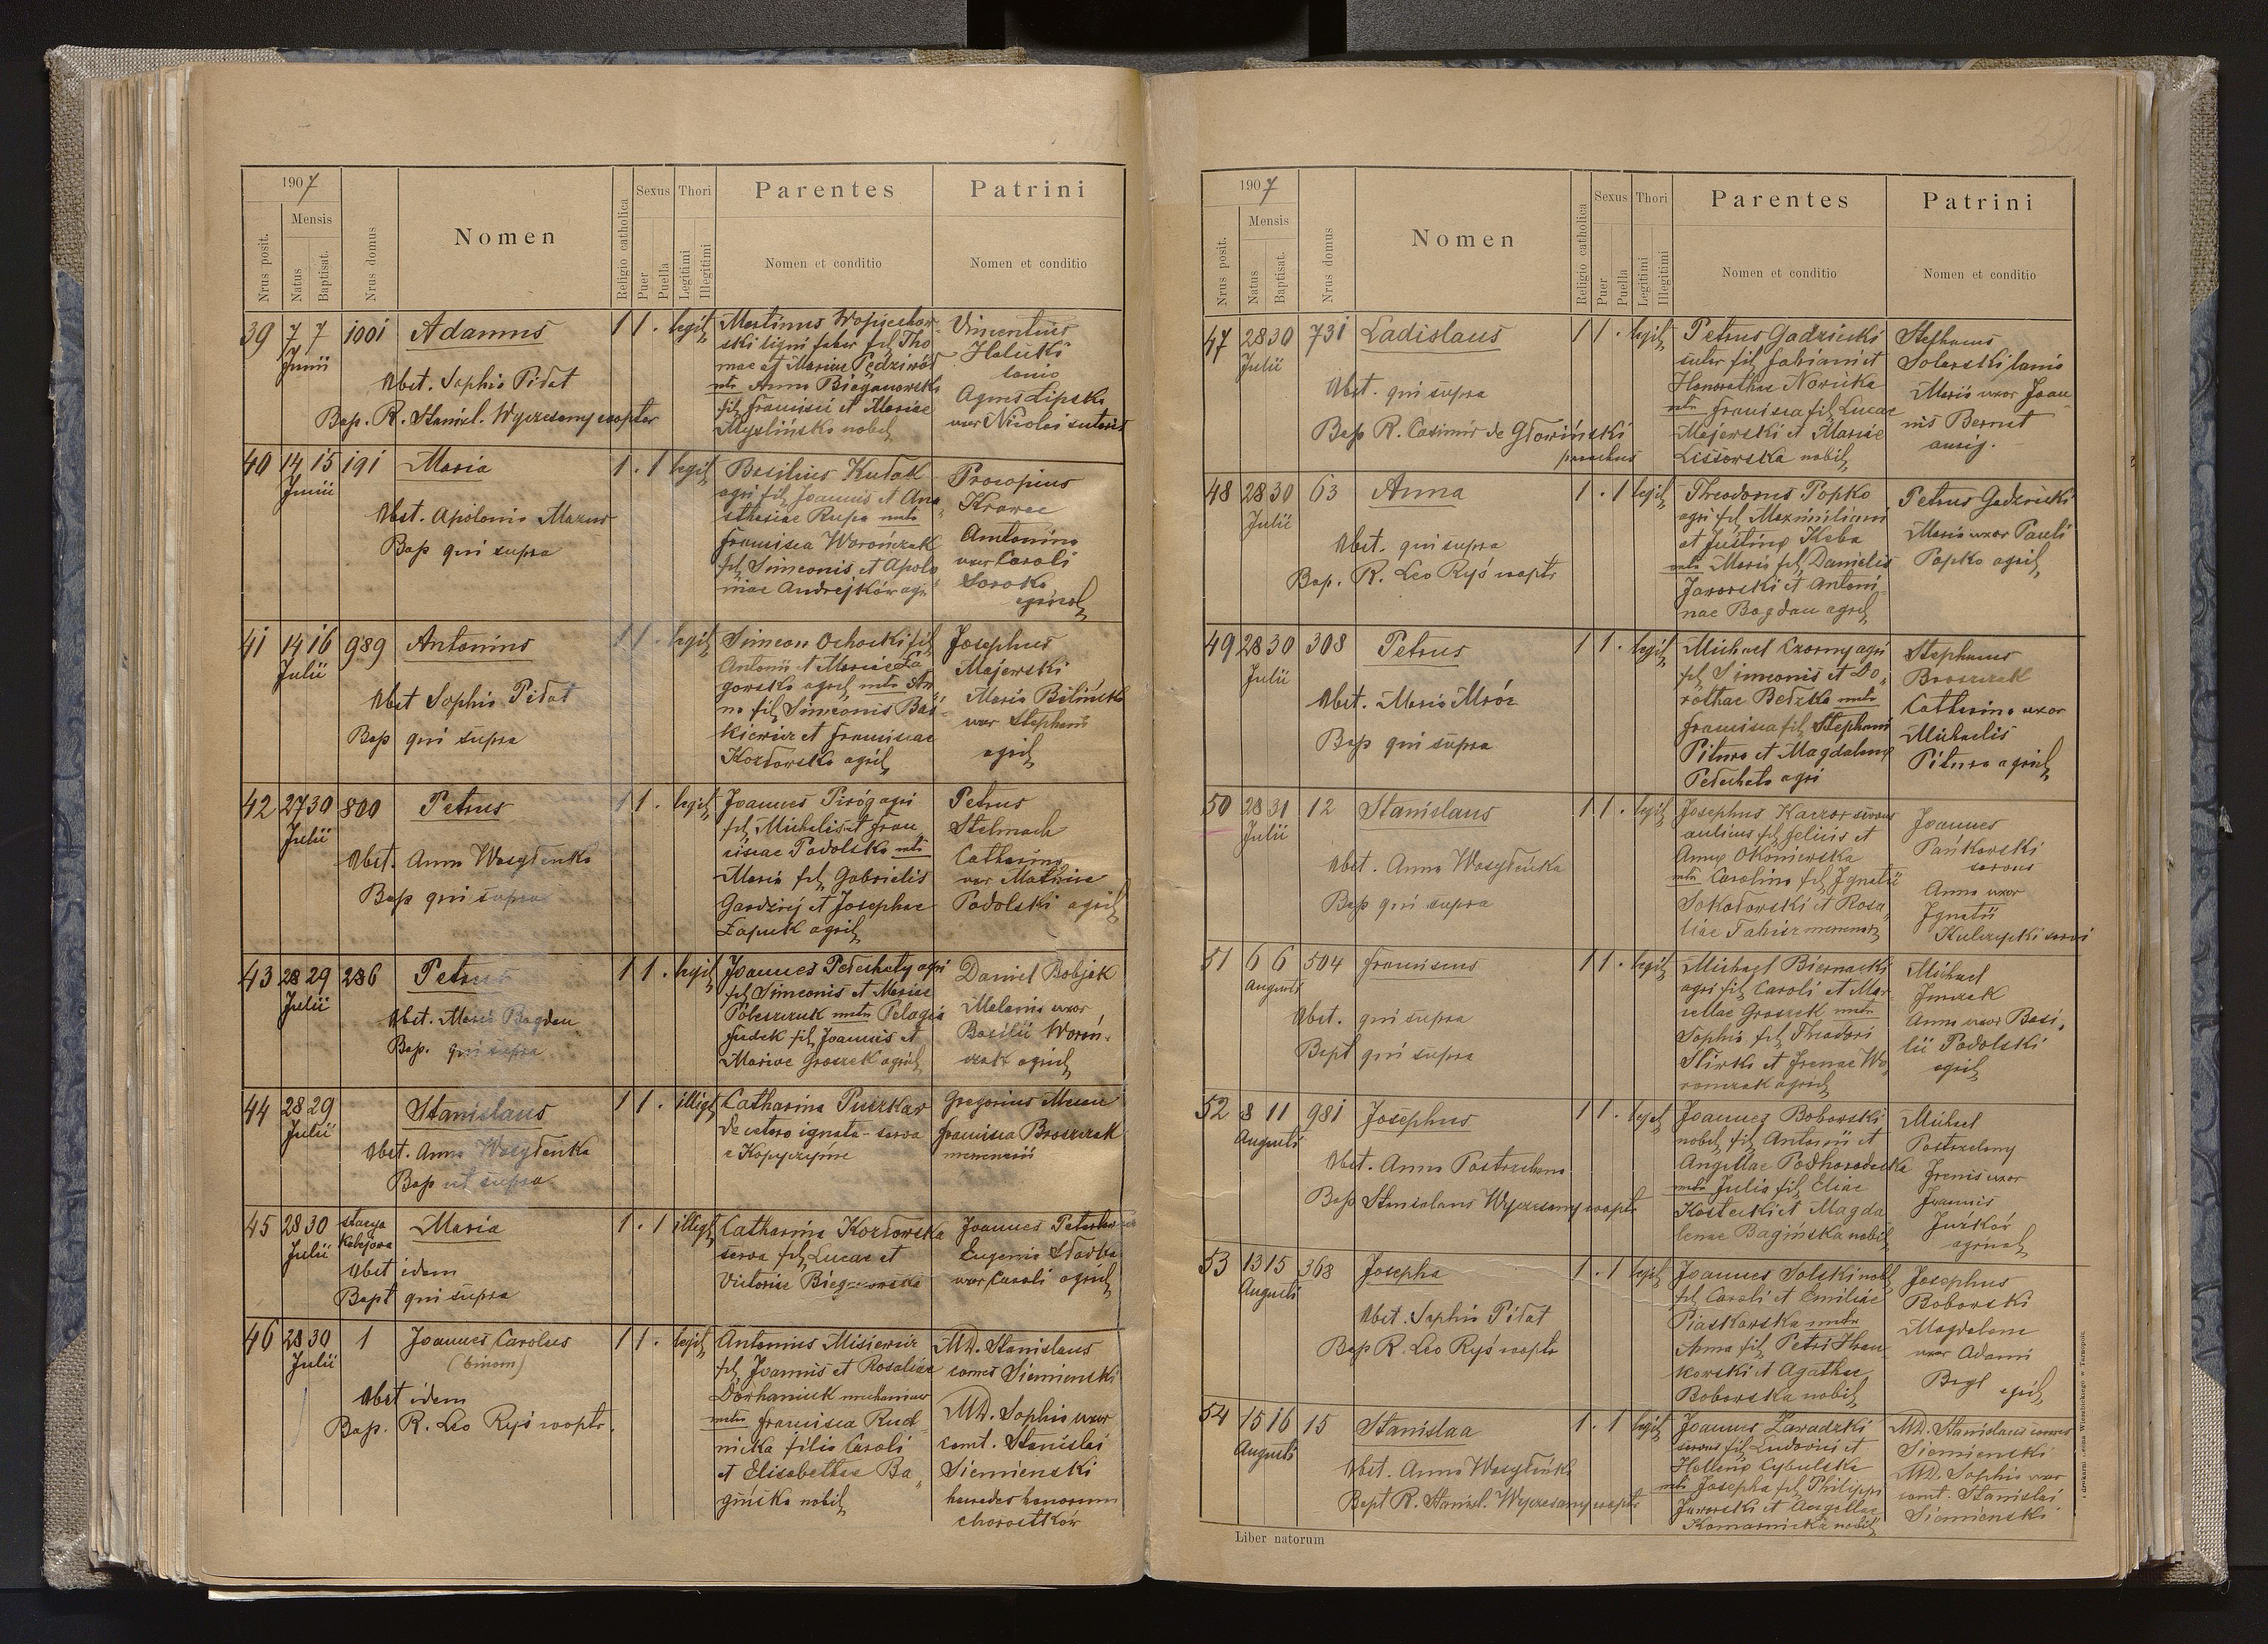 1907
Mensis
Nrus posit.
Natus
Baptisat.
Nrus domus
Nomen
Religio catholica
Sexus
Puer
Puella
Thori
Legitimi
Illegitimi
Parentes
Nomen et conditio
Patrini
Nomen et conditio
39 7 7 1001 Adamus 1 1 . legit
Junii
Obst. Sophia Pidat
Bap. R. Stanisl. Wyczesany coopter
Martinus Wojciechow-
ski ligni faber fil Tho
mae et Mariae Pędziwół
mtr Anna Bieganowska
fil Francisci et Mariae
Myślińska nobil
Vincentius
Halucki
lanio
Agnes Lipska
uxor Nicolai sutoris
40 14 15 191 Maria 1 . 1 legit
Junii
Obst. Apolonia Mazur
Bap qui supra
Basilius Kułak
agri fil Joannis et Ana
sthasiae Rupa mtr
Francisca Worończak
fil Simeonis et Apolo
niae Andrejków agri
Procopius
Krawec
Antonina
uxor Caroli
Soroka
agricol
41 14 16 989 Antonius 1 1 . legit
Julii
Obst Sophia Pidat
Bap qui supra
Simeon Ochocki fil
Antonii et Mariae Za
gorska agricol mtr An
na fil Simeonis Baś
kiewicz et Franciscae
Kozłowska agricol
Josephus
Majewski
Maria Bilińska
uxor Stephani
agricol
42 27 30 800 Petrus 1 1 . legit
Julii
Obst. Anna Wasyleńka
Bap qui supra
Joannes Piróg agri
fil Michaelis et Fran
ciscae Podolska mtr
Maria fil Gabrielis
Gardziej et Josephae
Łapuk agricol
Petrus
Stelmach
Catharina
uxor Mathiae
Podolski agricol
43 28 29 286 Petrus 1 1 . legit
Julii
Obst. Maria Bogdan
Bap. qui supra
Joannes Pełechaty agri
fil Simeonis et Mariae
Poleszczuk mtr Pelagia
Fudek fil Joannis et
Mariae Groszek agricol
Daniel Bobjak
Melania uxor
Basilii Woroń-
czak agricol
44 28 29 Stanislaus 1 1 . illigt
Julii
Obst. Anna Wasyleńka
Bap ut supra
Catharina Puszkar
de cetero ignota - serva
e Kopyczyńce
Gregorius Mecan
Francisca Broszczak
mercenarii
45 28 30 stacya Maria 1 . 1 illigt
Julii kolejowa
Obst idem
Bapt qui supra
Catharina Kozłowska
serva fil Lucae et
Victoriae Bieganowska
Joannes
Eugenia Sławka
uxor Caroli agricol
46 28 30 1 Joannes Carolus 1 1 . legit
Julii (binom)
Obst idem
Bap. R. Leo Ryś coopter.
Antonius Misiewicz
fil Joannis et Rosaliae
Dorhaniuk mechanicus
mtr Francisca Rud
nicka filia Caroli
et Elisabethae Ba
gińska nobil
MD. Stanislaus
comes Siemienski
MD. Sophia uxor
comt. Stanislai
Siemienski
haeredes bonorum
Chorostków
1907
Mensis
Nrus posit.
Natus
Baptisat.
Nrus domus
Nomen
Religio catholica
Sexus
Puer
Puella
Thori
Legitimi
Illegitimi
Parentes
Nomen et conditio
Patrini
Nomen et conditio
47 28 30 731 Ladislaus 1 1 . legit
Julii
Obst. qui supra
Bap R. Casimir de Głowiński
parochus
Petrus Gadzicki
sutor fil Fabiani et
Honorathae Noricka
mtr Francisca fil Lucae
Majewski et Mariae
Lissowska nobil
Stephanus
Solarski lanio
Maria uxor Joan
nis Bernat
aurig.
48 28 30 63 Anna 1 . 1 legit
Julii
Obst. qui supra
Bap. R. Leo Ryś coopter
Theodorus Popko
agri fil Maximiliani
et Justina Keba
mtr Maria fil Danielis
Jaworski et Antoni
nae Bogdan agricol
Petrus Gadzicki
Maria uxor Pauli
Popko agricol
49 28 30 308 Petrus 1 1 . legit
Julii
Obst. Maria Mróz
Bap qui supra
Michael Czorny agri
fil Simeonis et Do
rothae Bełzka mtr
Francisca fil Stephani
Pitura et Magdalena
Pełechata agri
Stephanus
Broszczak
Catharina uxor
Michaelis
Pitura agricol
50 28 31 12 Stanislaus 1 1 . legit
Julii
Obst. Anna Wasyleńka
Bap qui supra
Josephus Kaczor servus
aulicus fil Felicis et
Anna Okoniewska
mtr Carolina fil Ignatii
Sokołowski et Rosa
liae Tabisz mercenar
Joannes
Pańkowski
servus
Anna uxor
Ignatii
Kulczycki servi
51 6 6 504 Franciscus 1 1 . legit
Augusti
Obst. qui supra
Bapt qui supra
Michael Biernacki
agri fil Caroli et Mar
cellae Groszek mtr
Sophia fil Theodori
Slirka et Irenae Wo
ronczak agricol
Michael
Jurczak
Anna uxor Basi
lii Podolski
agricol
52 8 11 981 Josephus 1 1 . legit
Augusti
Obst. Anna Postrzelona
Bap Stanislaus Wyczesany coopter
Joannes Boborski
nobil fil Antonii et
Angellae Podhorodecka
mtr Julia fil Eliae
Kostecki et Magda
lenae Bagińska nobil
Michael
Postrzelony
Irenis uxor
Joannis
Juzków
agricol
53 13 15 368 Josepha 1 . 1 legit
Augusti
Obst. Sophia Pidat
Bap R. Leo Ryś coopter
Joannes Solski nobil
fil Caroli et Emiliae
Piaskowska mtr
Anna fil Petri Hran
kowski et Agathae
Boborska nobil
Josephus
Boborski
Magdalena
uxor Adami
Begl agricol
54 15 16 15 Stanislaa 1 . 1 legit
Augusti
Obst. Anna Wasyleńka
Bapt R. Stanisl. Wyczesany coopter
Joannes Zawadzki
servus fil Ludovici et
Hellena Cybulska
mtr Josepha fil Philippi
Jaworski et Angellae
Komarnicka nobil
MD. Stanislaus comes
Siemienski
MD. Sophia uxor
comt. Stanislai
Siemienski
Liber natorum